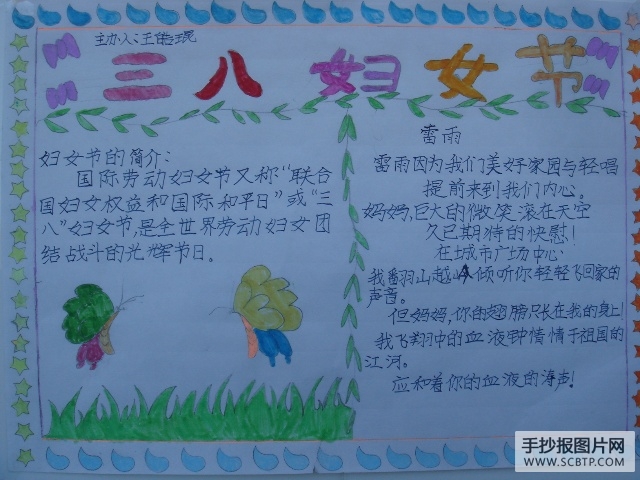 主办人:王皓琨
三八妇女节
妇女节的简介:
国际劳动妇女节又称"联合
国妇女权益和国际和平日"或"三
八"妇女节,是全世界劳动妇女团
结战斗的光辉节日。
雷雨
雷雨因为我们美好家园与轻唱
提前来到我们内心。
妈妈,巨大的微笑滚在天空
久已期待的快慰!
在城市广场中心
我翻山越岭倾听你轻轻飞回家的
声音。
但妈妈,你的翅膀只长在我的身上!
我飞翔中的血液钟情于祖国的
江河。
应和着你的血液的涛声!
手抄报图片网
WWW.SCBTP.COM